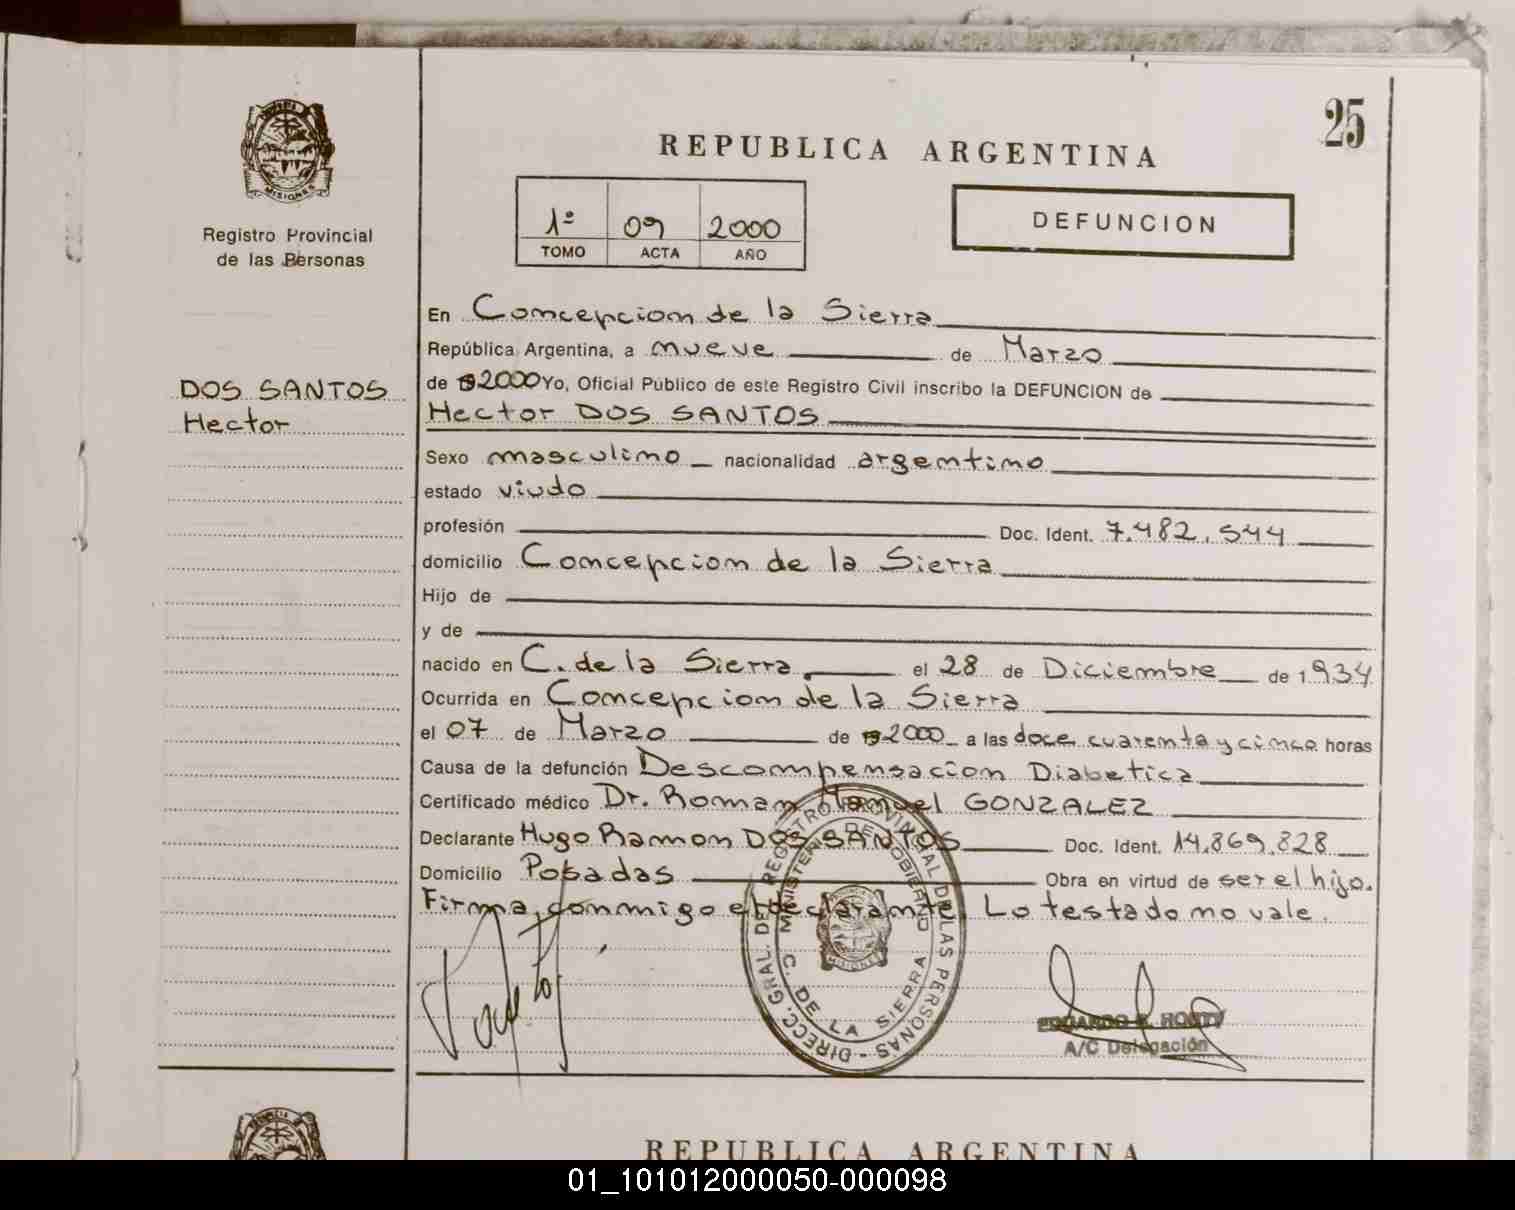 25
REPUBLICA ARGENTINA
MISIONES
Registro Provincial
de las Personas
1º 09 2000
TOMO ACTA AÑO
DEFUNCION
DOS SANTOS
Hector
En Concepcion de la Sierra
República Argentina, a nueve de Marzo
de 2000 Yo, Oficial Público de este Registro Civil inscribo la DEFUNCION de
Hector DOS SANTOS
Sexo masculino nacionalidad argentino
estado viudo
profesión Doc. Ident. 7.482.544
domicilio Concepcion de la Sierra
Hijo de
y de
nacido en C. de la Sierra el 28 de Diciembre de 1.934
Ocurrida en Concepcion de la Sierra
el 07 de Marzo de 2000 a las doce cuarenta y cinco horas
Causa de la defunción Descompensacion Diabetica
Certificado médico Dr. Roman Manuel GONZALEZ
Declarante Hugo Ramon DOS SANTOS Doc. Ident. 14.869.828
Domicilio Posadas Obra en virtud de ser el hijo.
Firma conmigo el declarante. Lo testado no vale.
DIRECC. GRAL. DEL REGISTRO PROVINCIAL DE LAS PERSONAS -
MINISTERIO DE GOBIERNO
C. DE LA SIERRA
MISIONES
A/C Delegación
REPUBLICA ARGENTINA
01_101012000050-000098